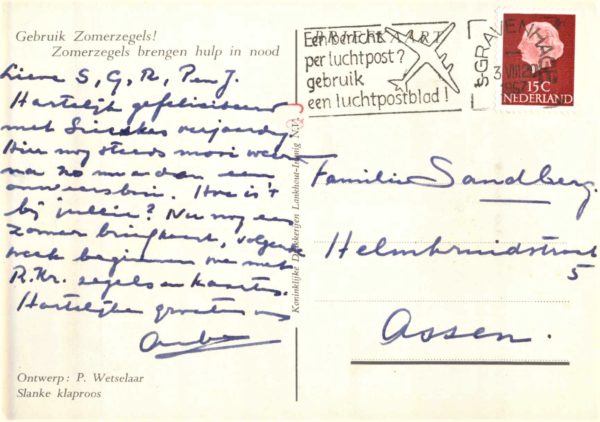 Gebruik Zomerzegels!
Zomerzegels brengen hulp in nood
Lieve S, G, R, P en J.
Hartelijk gefeliciteerd
met Sietskes verjaardag
Hier nog steeds mooi weer
na zo nu en dan een
onweersbui. Hoe is 't
bij jullie? Nu nog een
zomer briefkaart, volgende
week beginnen we met
R.Kr. zegels en kaarten.
Hartelijke groeten
Ontwerp: P. Wetselaar
Slanke klaproos
Koninklijke Drukkerijen Lankhout-Immig N.V.
BRIEFKAART
Een bericht
per luchtpost?
gebruik
een luchtpostblad!
'S-GRAVENHAGE
3.VIII
15C
NEDERLAND
Familie Sandberg.
Helmkruidstraat
5
Assen.